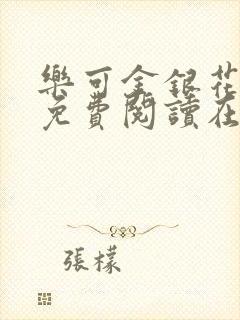 樂可金銀花
免費閱讀在
張檬